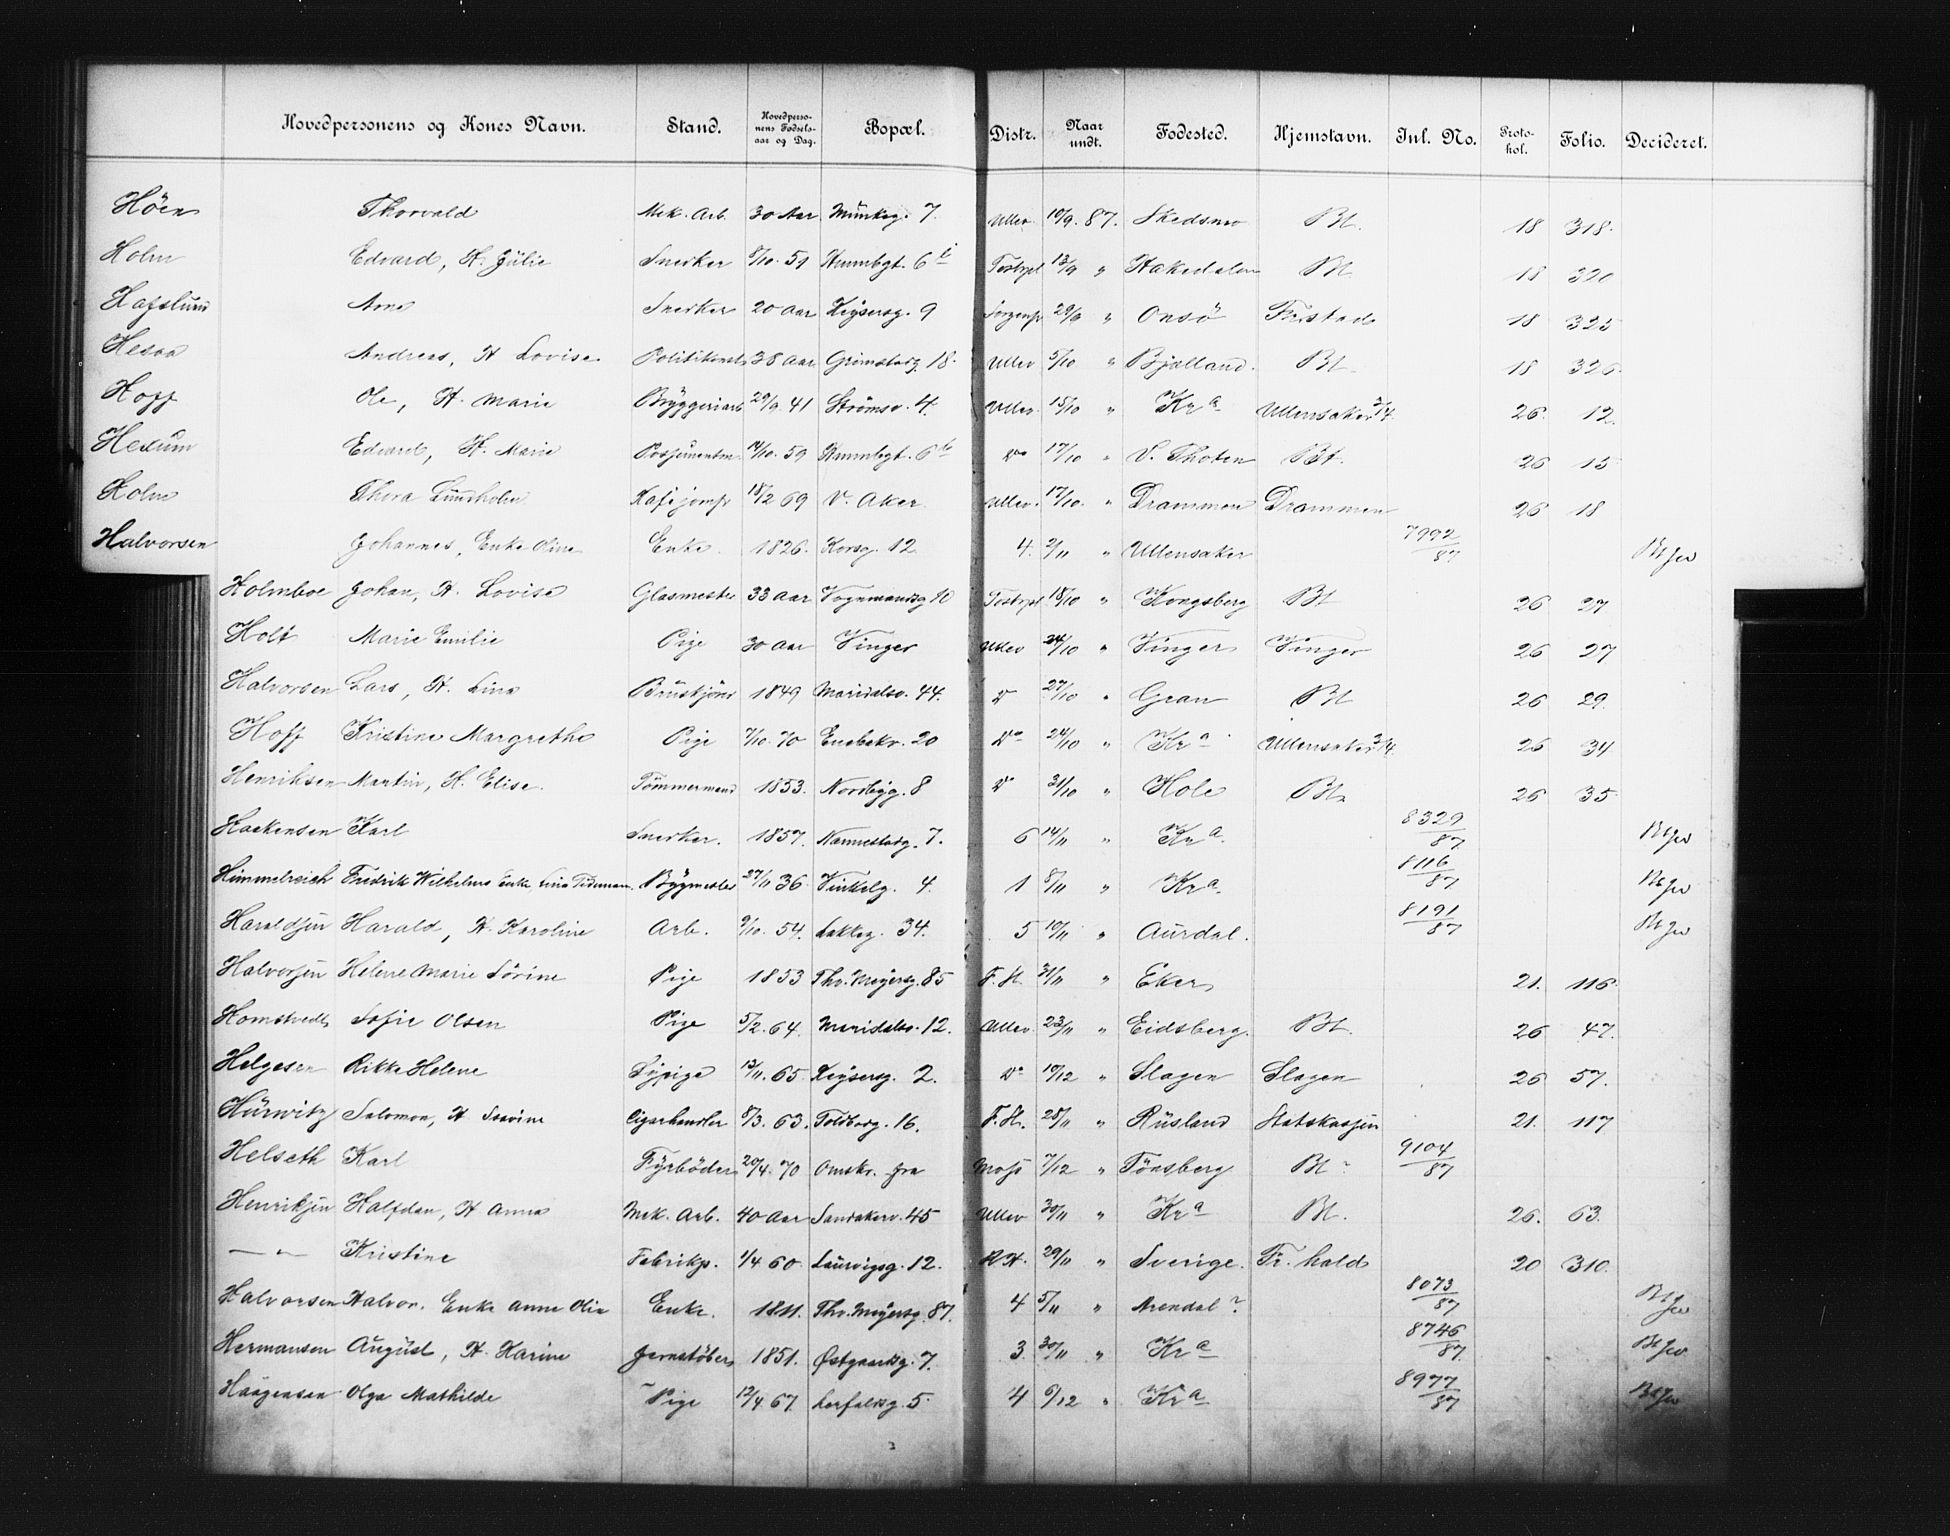 Hovedpersonens og Kones Navn. Stand. Hovedperso-nens Fødsels-aar og Dag. Bopæl. Distr. Naar undt. Fødested. Hjemstavn. Inl. No. Proto-kol. Folio. Decideret.
Höen Thorvald Mek. Arb. 30 Aar Munkeg. 7. Ullev. 10/9. 87. Skedsmo Bt. 18 318.
Holm Edvard, H. Julie Snedker 8/10. 51 6 b 13/9 " Hakedalen Bt 18 320
Hafslund Snedker 20 Aar Keysersg. 9 29/9 " Onsö Frstad 18 325
Andreas, H Lovise 38 Aar Grimstadg 18. Ullev 5/10 " Bjelland. Bt. 18 326.
Hoff Ole, H. Marie Bryggeriarb 29/9. 41 Strömsv. 4. Ullev. 15/10 " Kra Ullensaker 3/4. 26. 12.
Hexum Edvard, H. Marie 14/10. 59 6 b Do 17/10 " V. Thoten Bt. 26 15
Holm Thora Lundholm Kafejomfr 18/2 69 V. Aker Ullev. 17/10. " Drammen Drammen 26 18
Halvorsen Johannes, Enke Oline Enke. 1826. Korsg. 12. 4. 2/11 " Ullensaker 7992/87
Holmboe Johan, H. Lovise Glasmester 33 Aar Vognmandsg 10 18/10 " Kongsberg Bt 26 27
Holt Marie Emilie Pige 30 Aar Vinger Ullev 24/10 " Vinger Vinger 26 27
Halvorsen Lars, H. Lina 1849 Maridalsv. 44. Do 27/10 " Gran Bt 26 29.
Hoff Kristine Margrethe Pige 7/10. 70 Enebakv. 20 Do 24/10 " Kra Ullensaker 3/4. 26 34
Henriksen Martin, H. Elise. Tömmermand 1853. Nordbyg. 8 Do 31/10 " Hole Bt. 26 35.
Haakensen Karl Snedker. 1857. Nannestadg. 7. 6 14/11 " Kra. 8329/87
Himmelreich Fredrik Wilhelms Enke Lina Tidemann. Bygmester 27/11 36. Vinkelg. 4. 1 8/11 " Kra. 8116/87
Haraldsen Harald, H. Karoline Arb. 9/10. 54. Lakkeg. 34. 5 10/11 " Aurdal. 8191/87
Halvorsen Helene Marie Sörine Pige 1853 Thv. Meyersg. 85 F. St. 21/11 " Eker 21. 116.
Homstvedt Sofie Olsen Pige 5/2. 64. Maridalsv. 12. Ullev. 23/11 " Eidsberg. Bt. 26 47.
Helgesen Rikka Helene Sypige 13/11. 65. Keysersg. 2. Do 10/12 " Slagen Slagen 26 57.
Hurwitz Salomon, H. Cigarhandler 8/3. 63. Toldbodg. 16. F. St. 28/11 " Rusland Statskassen 21. 117
Helseth Karl Fyrböder 20/4. 70 Omskr. fra Moss 7/12 " Tönsberg Bt? 9104/87
Henriksen Halfdan, H Anna Mek. Arb. 40 Aar Sandakerv. 45 Ullev 30/11 " Kra Bt. 26. 63.
— " — Kristine Fabrikp. 1/4 60. Laurvigsg. 12. R.H. 29/11 " Sverige. Fr. hald 20 310.
Halvorsen Halvor. Enke Anne Olia Enke. 1811. Thv. Meyersg 87. 4 5/11 " Arendal? 8073/87
Hermansen August, H. Karine Jernstöber 1851. Østgaardsg. 7. 3. 30/11 " Kra 8746/87.
Haagensen Olga Mathilde Pige 12/4 67. Lerfaldsg. 5. 4 6/12 " Kra 8977/87